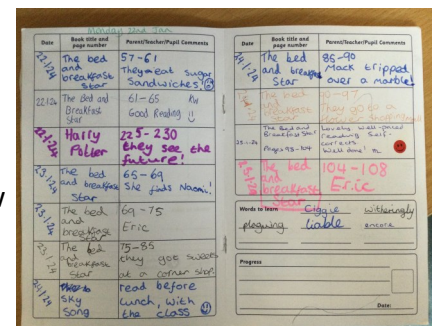 Monday 22nd Jan
Date
Book title and page number
Parent/Teacher/Pupil Comments
22.1.24
The bed and breakfast Star
57-61
They eat sugar Sandwiches!
22.1.24
The Bed and Breakfast Star
61-65
Good Reading
RW
Harry Potter
225-230
they see the future!
23.1.24
The bed and breakfast Star
65-69
She finds Naomi!
23.1.24
The bed and breakfast Star
69-75
Eric
23.1.24
The bed and breakfast Star
75-85
they got sweets at a corner shop.
24/1/24
Sky Song
read before lunch, with the class
Date
Book title and page number
Parent/Teacher/Pupil Comments
24/1/24
The bed and breakfast Star
85-90
Mack tripped over a marble!
The bed and breakfast Star
90-97
They go to a
The Bed and Breakfast Star
Pages 98-104
Lovely well-paced reading. Self-corrects
Well done!
The bed and breakfast Star
104-108
Eric
Words to learn
Ciggie
witheringly
plaguing
liable
encore
Progress
Date: